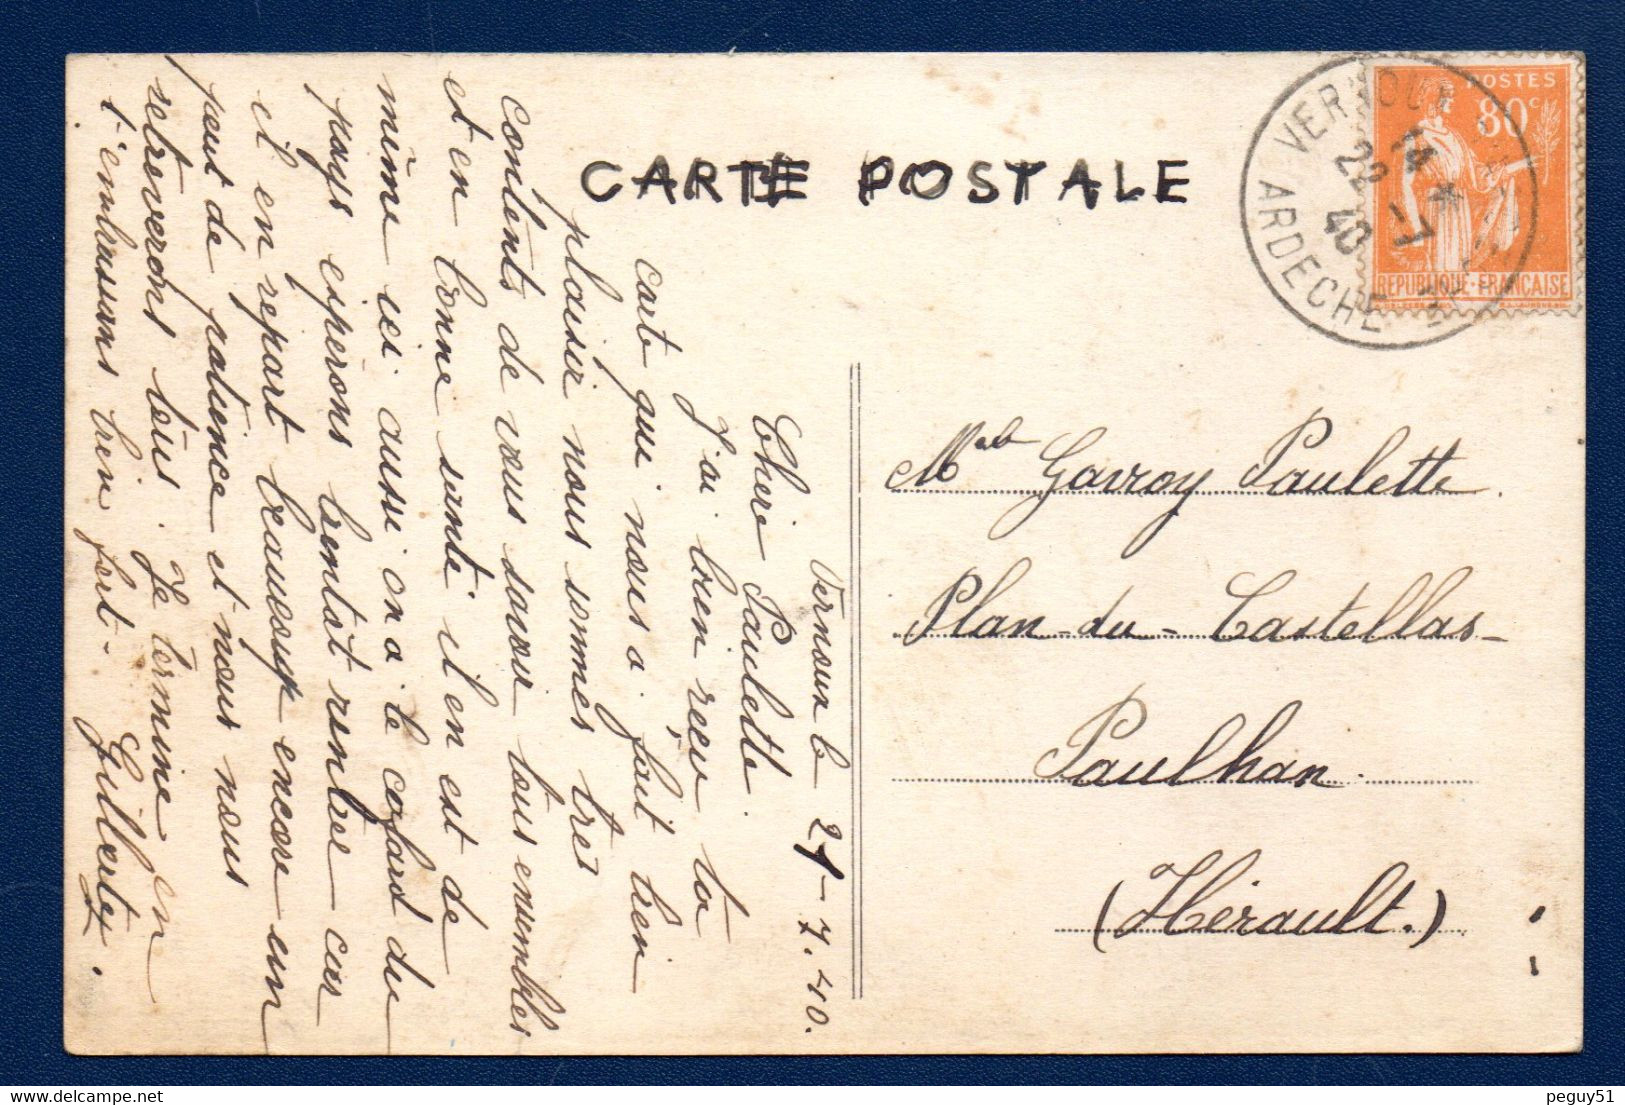 CARTE POSTALE
POSTES
80c
REPUBLIQUE-FRANÇAISE
VERNOUX
14
22-7
40
ARDECHE
Melle Gavroy Paulette.
Plan-du-Castellas-
Paulhan.
(Hérault.)
Vernoux le 21-7.40.
Chère Paulette.
J'ai bien reçu ta
carte qui nous a fait bien
plaisir nous sommes très
contents de vous savoir tous ensembles
et en bonne santé il en est de
même ici aussi on a le cafard du
pays espérons bientôt rentrer car
il en repart beaucoup encore un
peut de patience et nous nous
retreverons tous. Je termine en
t'embrassans bien fort-
Gilberte.
peguy51